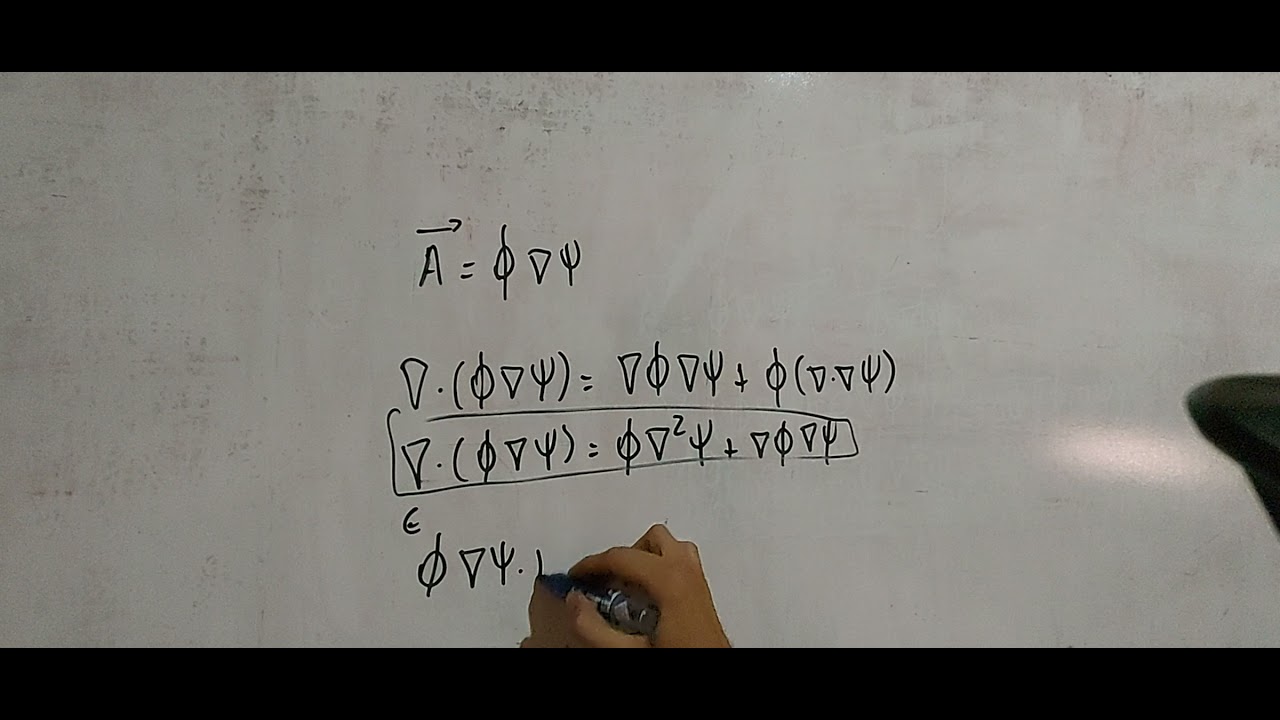 A⃗ = ϕ ∇ψ
∇·(ϕ∇ψ) = ∇ϕ∇ψ + ϕ(∇·∇ψ)
∇·(ϕ∇ψ) = ϕ∇²ψ + ∇ϕ∇ψ
ϵ
ϕ∇ψ·